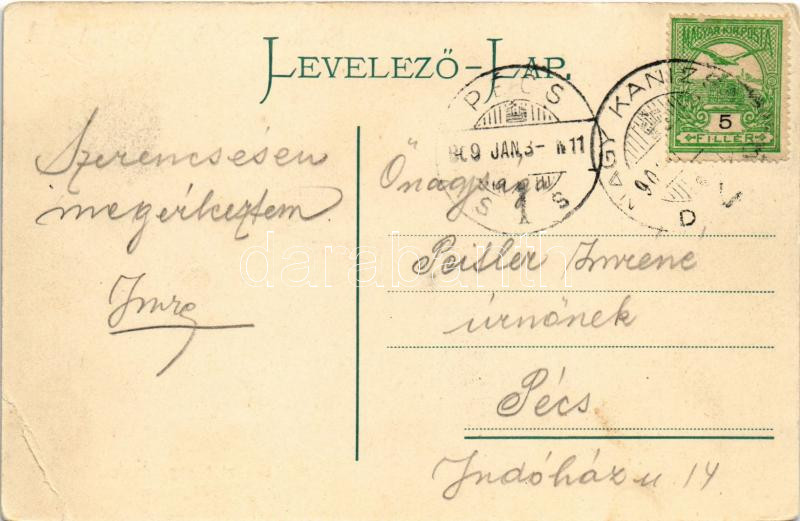 LEVELEZŐ-LAP.
MAGYAR KIR. POSTA
5
FILLÉR
PÉCS
909 JAN. 3- N11
1
NAGY KANIZSA
D
Szerencsésen
megérkeztem
Imre
Őnagysága
Peisler Imréné
úrnőnek
Pécs
Indóház u 14
darabanth